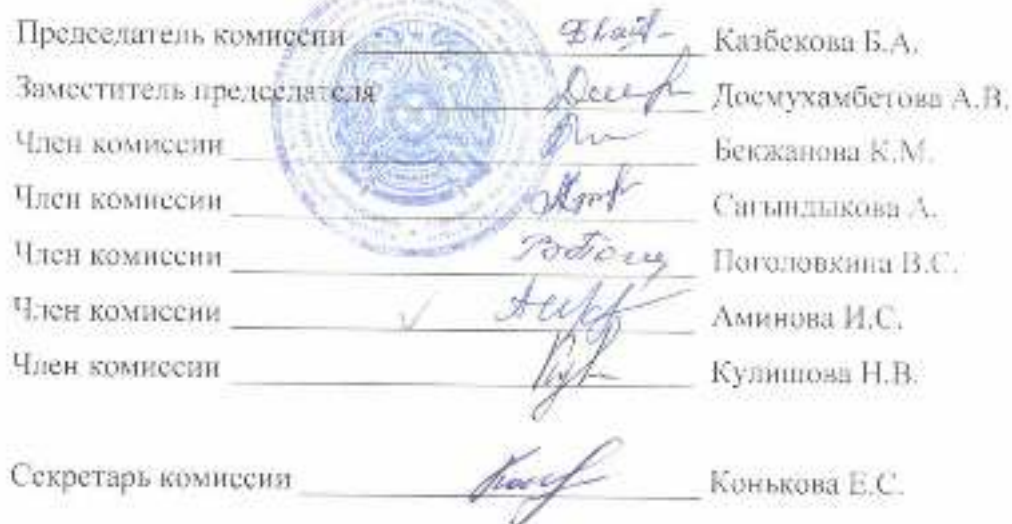 Председатель комиссии Казбекова Б.А.
Заместитель председателя Досмухамбетова А.В.
Член комиссии Бекжанова К.М.
Член комиссии Сагындыкова А.
Член комиссии Поголовкина В.С.
Член комиссии Аминова И.С.
Член комиссии Кулишова Н.В.
Секретарь комиссии Конькова Е.С.